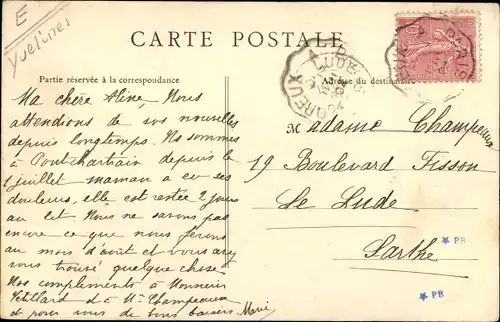 E
Yvelines
CARTE POSTALE
Partie réservée à la correspondance
Adresse du destinataire
Ma chère Aline, Nous
attendions de vos nouvelles
depuis longtemps. Nous sommes
à Pontchartrain depuis le
1 juillet maman a eu ses
douleurs, elle est restée 2 jours
au lit Nous ne savons pas
encore ce que nous ferons
au mois d'août et vous avez
vous trouvé quelque chose
Nos compliments à Monsieur
et à Me Champeaux
et pour vous de bons baisers Marie
Madame Champeaux
19 Boulevard Fisson
Le Lude
Sarthe
PB
PB